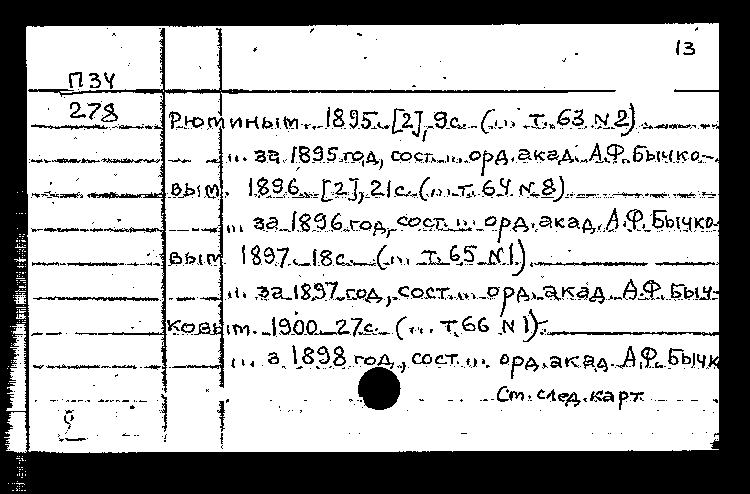 13
ПЗЧ
278
Рютиным. 1895. [2], 9с. (... т. 63 N 2)
... за 1895 год, сост. ... орд. акад. А.Ф. Бычко-
вым. 1896. [2], 21с. (... т. 64 N 8)
... за 1896 год, сост. ... орд. акад. А.Ф. Бычко-
вым 1897. 18с. (... т. 65 N 1)
... за 1897 год, сост. ... орд. акад А.Ф. Быч-
ковым. 1900. 27с. (... т. 66 N 1).
... з 1898 год, сост. ... орд. акад. А.Ф. Бычк
Ст. след. карт